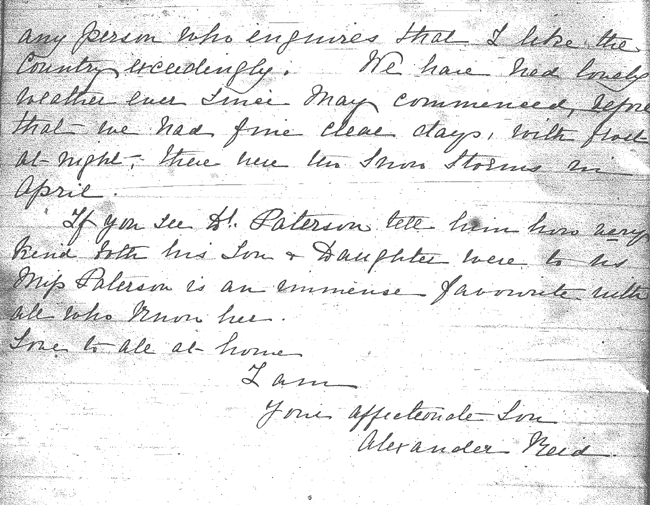 any person who enquires that I like the
Country exceedingly. We have had lovely
weather ever since May commenced, before
that we had fine clear days, with frost
at night, there were two Snow Storms in
April.
If you see Dr. Paterson tell him how very
kind both his Son & Daughter were to us
Miss Paterson is an immense favourite with
all who know her.
Love to all at home
I am
Your affectionate Son
Alexander Reid.